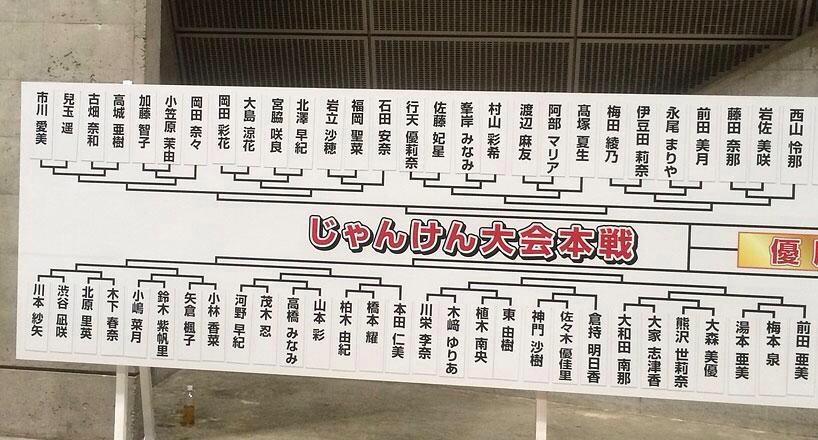 市川 愛美
兒玉 遥
古畑 奈和
高城 亜樹
加藤 智子
小笠原 茉由
岡田 奈々
岡田 彩花
大島 涼花
宮脇 咲良
北澤 早紀
岩立 沙穂
福岡 聖菜
石田 安奈
行天 優莉奈
佐藤 妃星
峯岸 みなみ
村山 彩希
渡辺 麻友
阿部 マリア
髙塚 夏生
梅田 綾乃
伊豆田 莉奈
永尾 まりや
前田 美月
藤田 奈那
岩佐 美咲
西山 怜那
じゃんけん大会本戦
優
川本 紗矢
渋谷 凪咲
北原 里英
木下 春奈
小嶋 菜月
鈴木 紫帆里
矢倉 楓子
小林 香菜
河野 早紀
茂木 忍
高橋 みなみ
山本 彩
柏木 由紀
橋本 耀
本田 仁美
川栄 李奈
木﨑 ゆりあ
植木 南央
東 由樹
神門 沙樹
佐々木 優佳里
倉持 明日香
大和田 南那
大家 志津香
熊沢 世莉奈
大森 美優
湯本 亜美
梅本 泉
前田 亜美